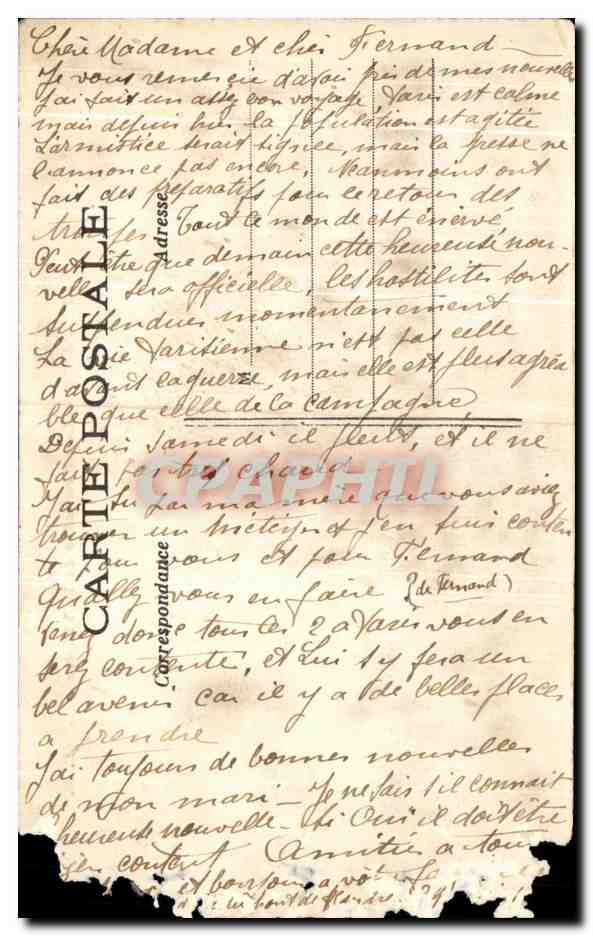 Chère Madame et cher Fernand
Je vous remercie d'avoir pris de mes nouvelles
J'ai fait un assez bon voyage, Paris est calme
mais depuis hier la population est agitée
L'armistice serait signée, mais la presse ne
l'annonce pas encore, Neanmoins ont
fait des préparatifs pour le retour des
troupes Tout le monde est énervé
Peut être que demain cette heureuse nou-
velle sera officielle, les hostilités sont
suspendues momentanement
La vie Parisienne n'est pas celle
d'avant la guerre, mais elle est plus agréa
ble que celle de la campagne,
Depuis samedi il pleut, et il ne
fait pas très chaud
J'ai su par ma mère que vous aviez
trouver un metayer j'en suis conten
te pour vous et pour Fernand
Qu'allez vous en faire (de Fernand)
Venez donc tous les 2 a Paris vous en
serez contente, et Lui s'y fera un
bel avenir car il y a de belles places
a prendre
J'ai toujours de bonnes nouvelles
de mon mari - Je ne sais s'il connait
heureuse nouvelle - si Oui il doit être
content Amitiés a tous
et bonjour a
bout de
CARTE POSTALE
Correspondance
Adresse
CPAPHIL